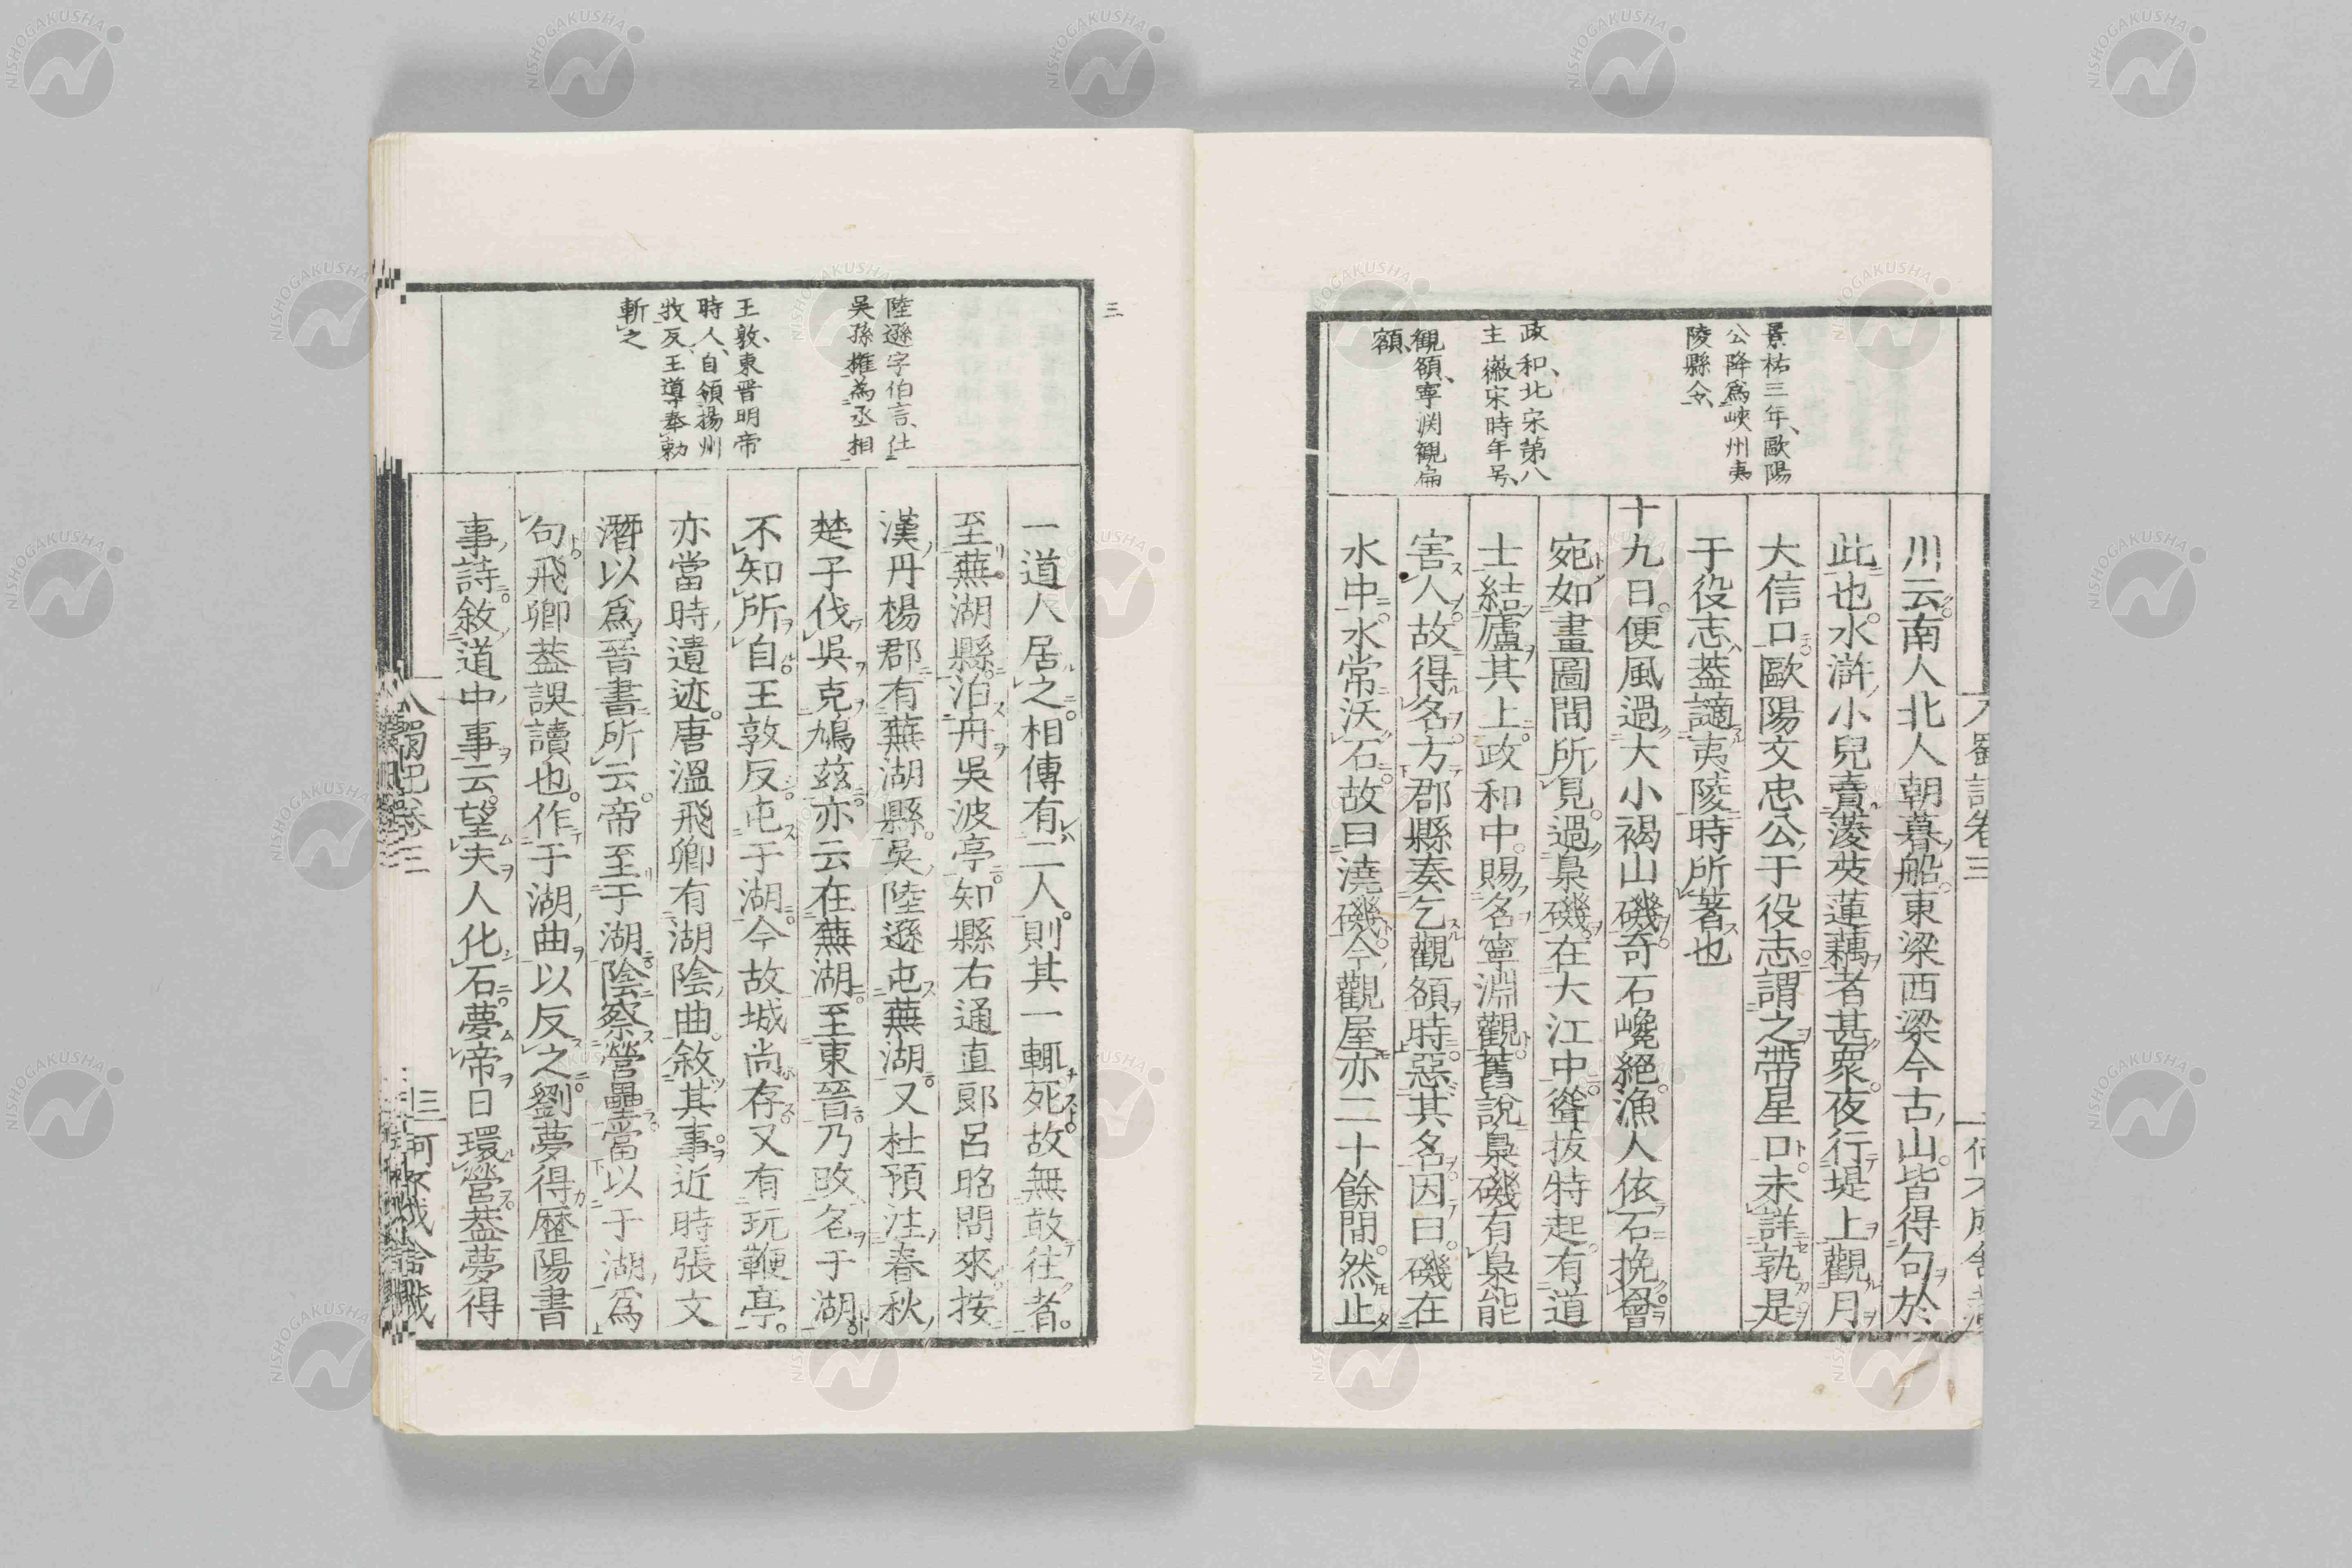 景祐三年、歐陽
公降爲峽州夷
陵縣令、
政和、北宋第八
主徽宋時年号、
觀額、寧渕觀扁
額、
川云南人北人朝暮船。東梁西梁今古山。皆得句於
此也。水滸小兒賣菱芡蓮藕者甚衆。夜行堤上觀月
大信口。歐陽文忠公于役志。謂之帶星口。未詳孰是
于役志。蓋謫夷陵時所著也
十九日。便風過大小褐山磯。奇石巉絕。漁人依石挽罾
宛如畫圖間所見。過梟磯。在大江中。聳拔特起。有道
士結廬其上。政和中。賜名寧淵觀。舊說梟磯有梟能
害人。故得名。方郡縣奏乞觀額時。惡其名。因曰。磯在
水中。水常沃石。故曰澆磯。今觀屋亦二十餘間。然止
陸遜字伯言、仕
吳孫權爲丞相
王敦、東晉明帝
時人、自領揚州
牧反、王導奉勅
斬之
三
一道人居之。相傳有二人。則其一輒死。故無敢往者。
至蕪湖縣。泊舟吳波亭。知縣右通直郎呂昭問來。按
漢丹楊郡有蕪湖縣。吳陸遜屯蕪湖。又杜預注春秋
楚子伐吳克鳩茲。亦云在蕪湖。至東晉。乃改名于湖。
不知所自。王敦反。屯于湖。今故城尚存。又有玩鞭亭。
亦當時遺迹。唐溫飛卿有湖陰曲。敘其事。近時張文
潛以爲晉書所云。帝至于湖。陰察營壘。當以于湖爲
句。飛卿蓋誤讀也。作于湖曲以反之。劉夢得歷陽書
事詩。敘道中事云。望夫人化石。夢帝日環營。蓋夢得